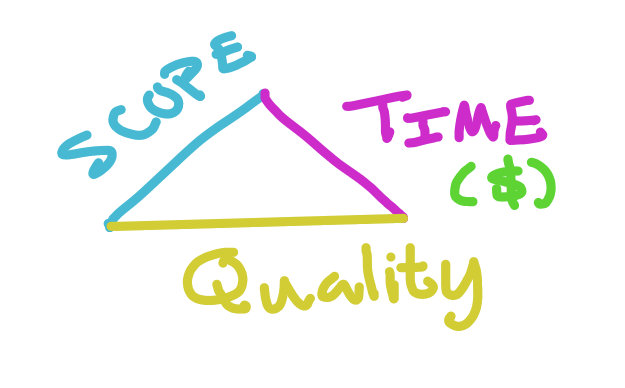 SCOPE
TIME
($)
Quality